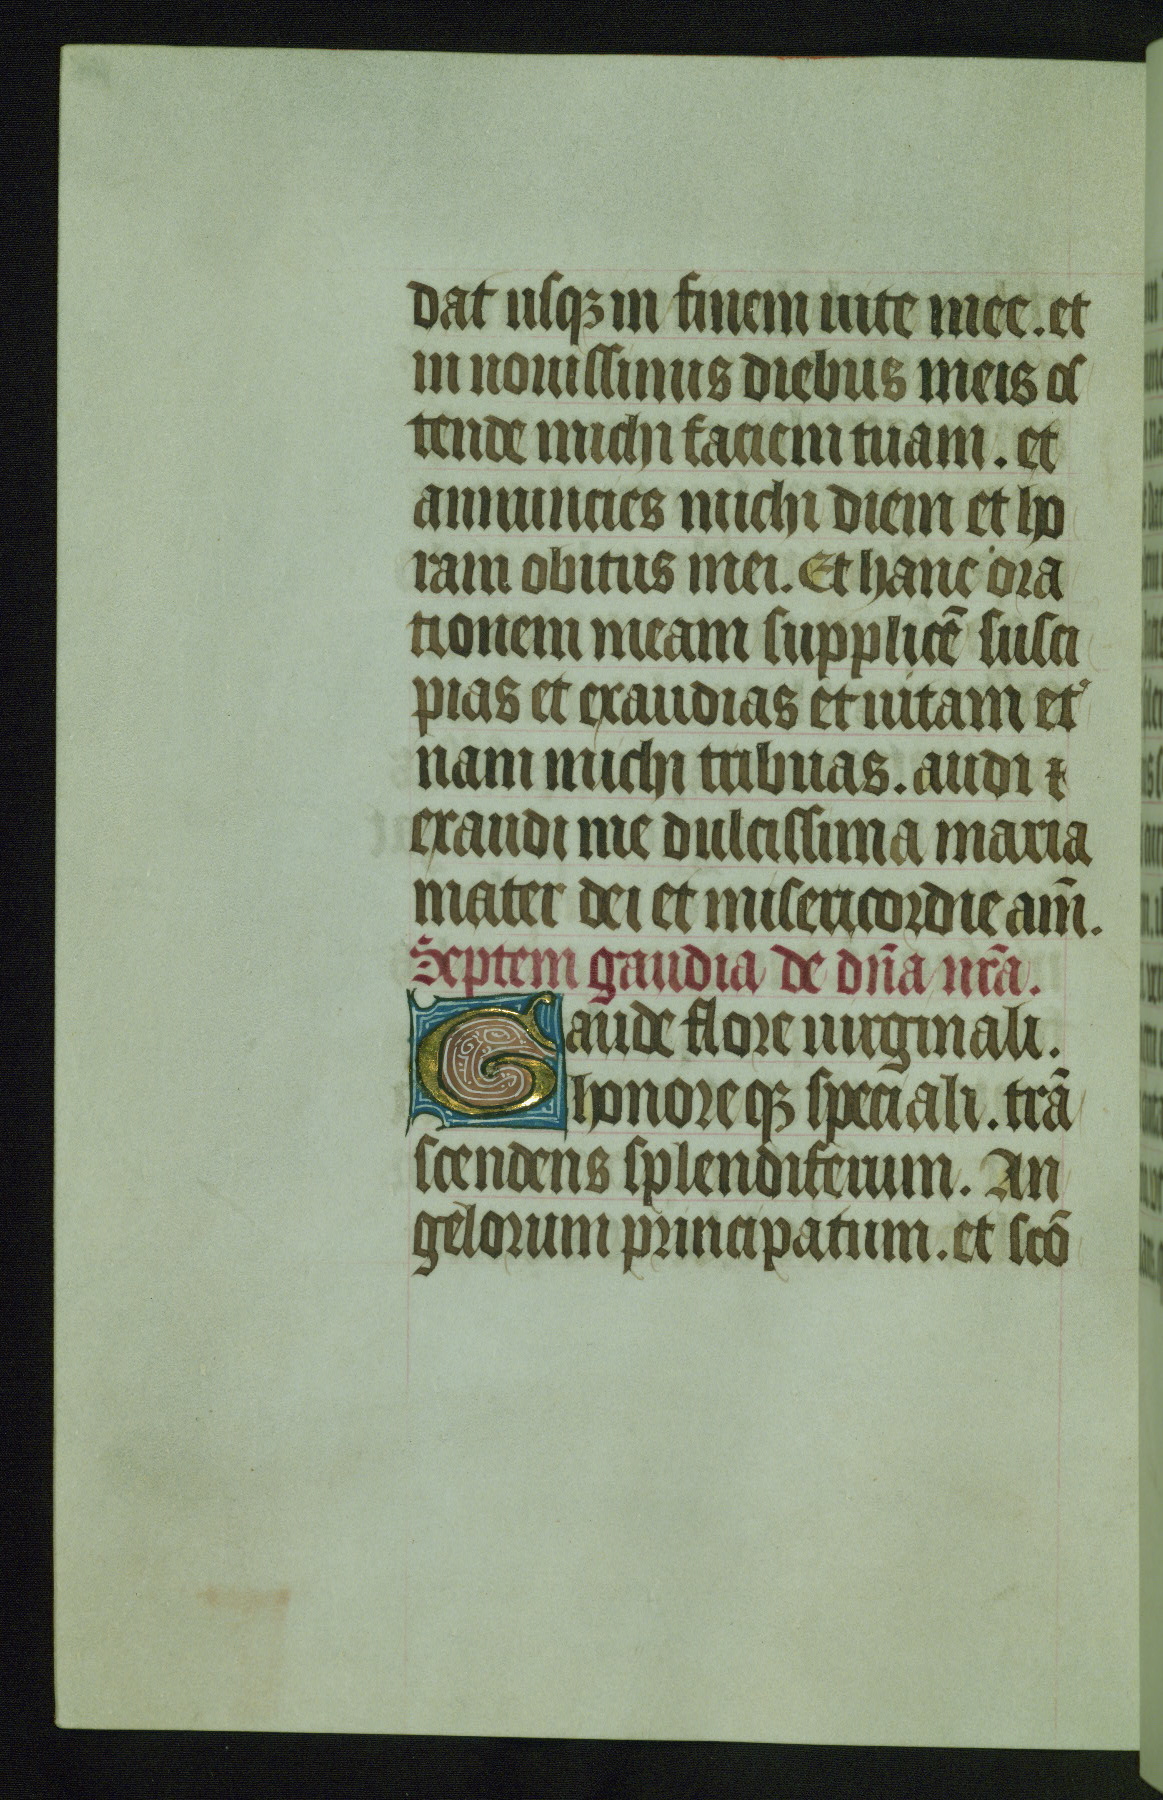 dat usqꝫ in finem uite mee. et
in nouissimus diebus meis os
tende michi faciem tuam. et
annuncies michi diem et ho
ram obitus mei. Et hanc ora
tionem meam supplicē susci
pias et exaudias et uitam et᾿
nam michi tribuas. audi ⁊
exaudi me dulcissima maria
mater dei et misericordie am̄.
Septem gaudia de dn̄a nr̄a.
Gaude flore uirginali.
honoreqꝫ speciali. trā
scendens splendiferum. An
gelorum principatum. et scō